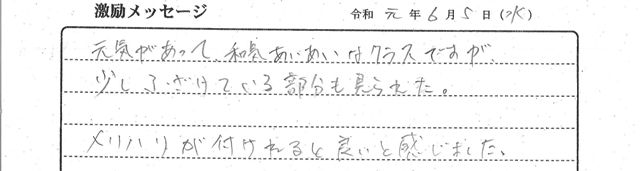 激励メッセージ 令和 元 年 6 月 5 日 (水)
元気があって、和気あいあいなクラスですが、
少しふざけている部分も見られた。
メリハリが付けれると良いと感じました。